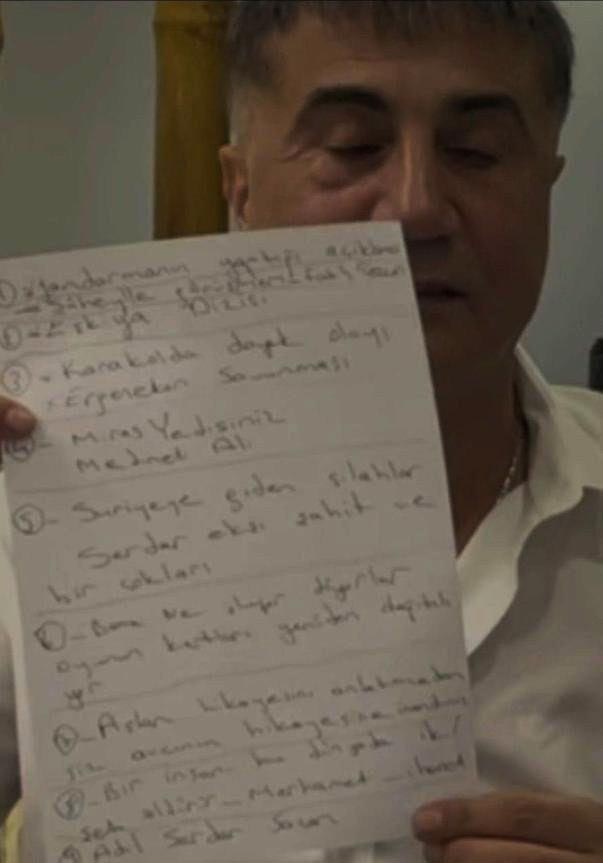 ① * Jandarmanın yaptığı açıklama
② - Eşkıya Dizisi
③ - Karakolda dayak olayı
* Ergenekon Savunması
④ - Miras Yedisiniz
Mehmet Ali
⑤ - Suriyeye giden silahlar
Serdar ekşi şahit ve
bir çokları
- Bana ne oluyor diyorlar
oyunun kartları yeniden dağıtılı
yor
- Aslan hikayesini anlatmadan
siz avcının hikayesine inandınız
⑧ - Bir insanı bu dünyada iki
şey öldürür - Merhamet - ihanet
Adil Serdar Saçan